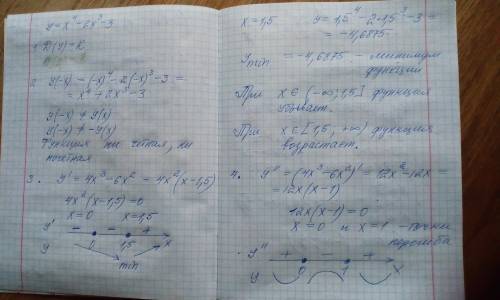 y=x⁴-2x³-3
1. D(y)=R
2. y(-x)=(-x)⁴-2(-x)³-3=
=x⁴+2x³-3
y(-x)≠y(x)
y(-x)≠-y(x)
Функция ни четная, ни
нечетная
3. y'=4x³-6x²=4x²(x-1,5)
4x²(x-1,5)=0
x=0 x=1,5
y' - - +
0 1,5 x
y min
x=1,5 y=1,5⁴-2·1,5³-3=
=-4,6875
y min = -4,6875 - минимум
функции
При x∈(-∞;1,5] функция
убывает.
При x∈[1,5; +∞) функция
возрастает.
4. y''=(4x³-6x²)'=12x²-12x=
=12x(x-1)
12x(x-1)=0
x=0 и x=1 - точки
перегиба
y'' + - +
0 1 x
y